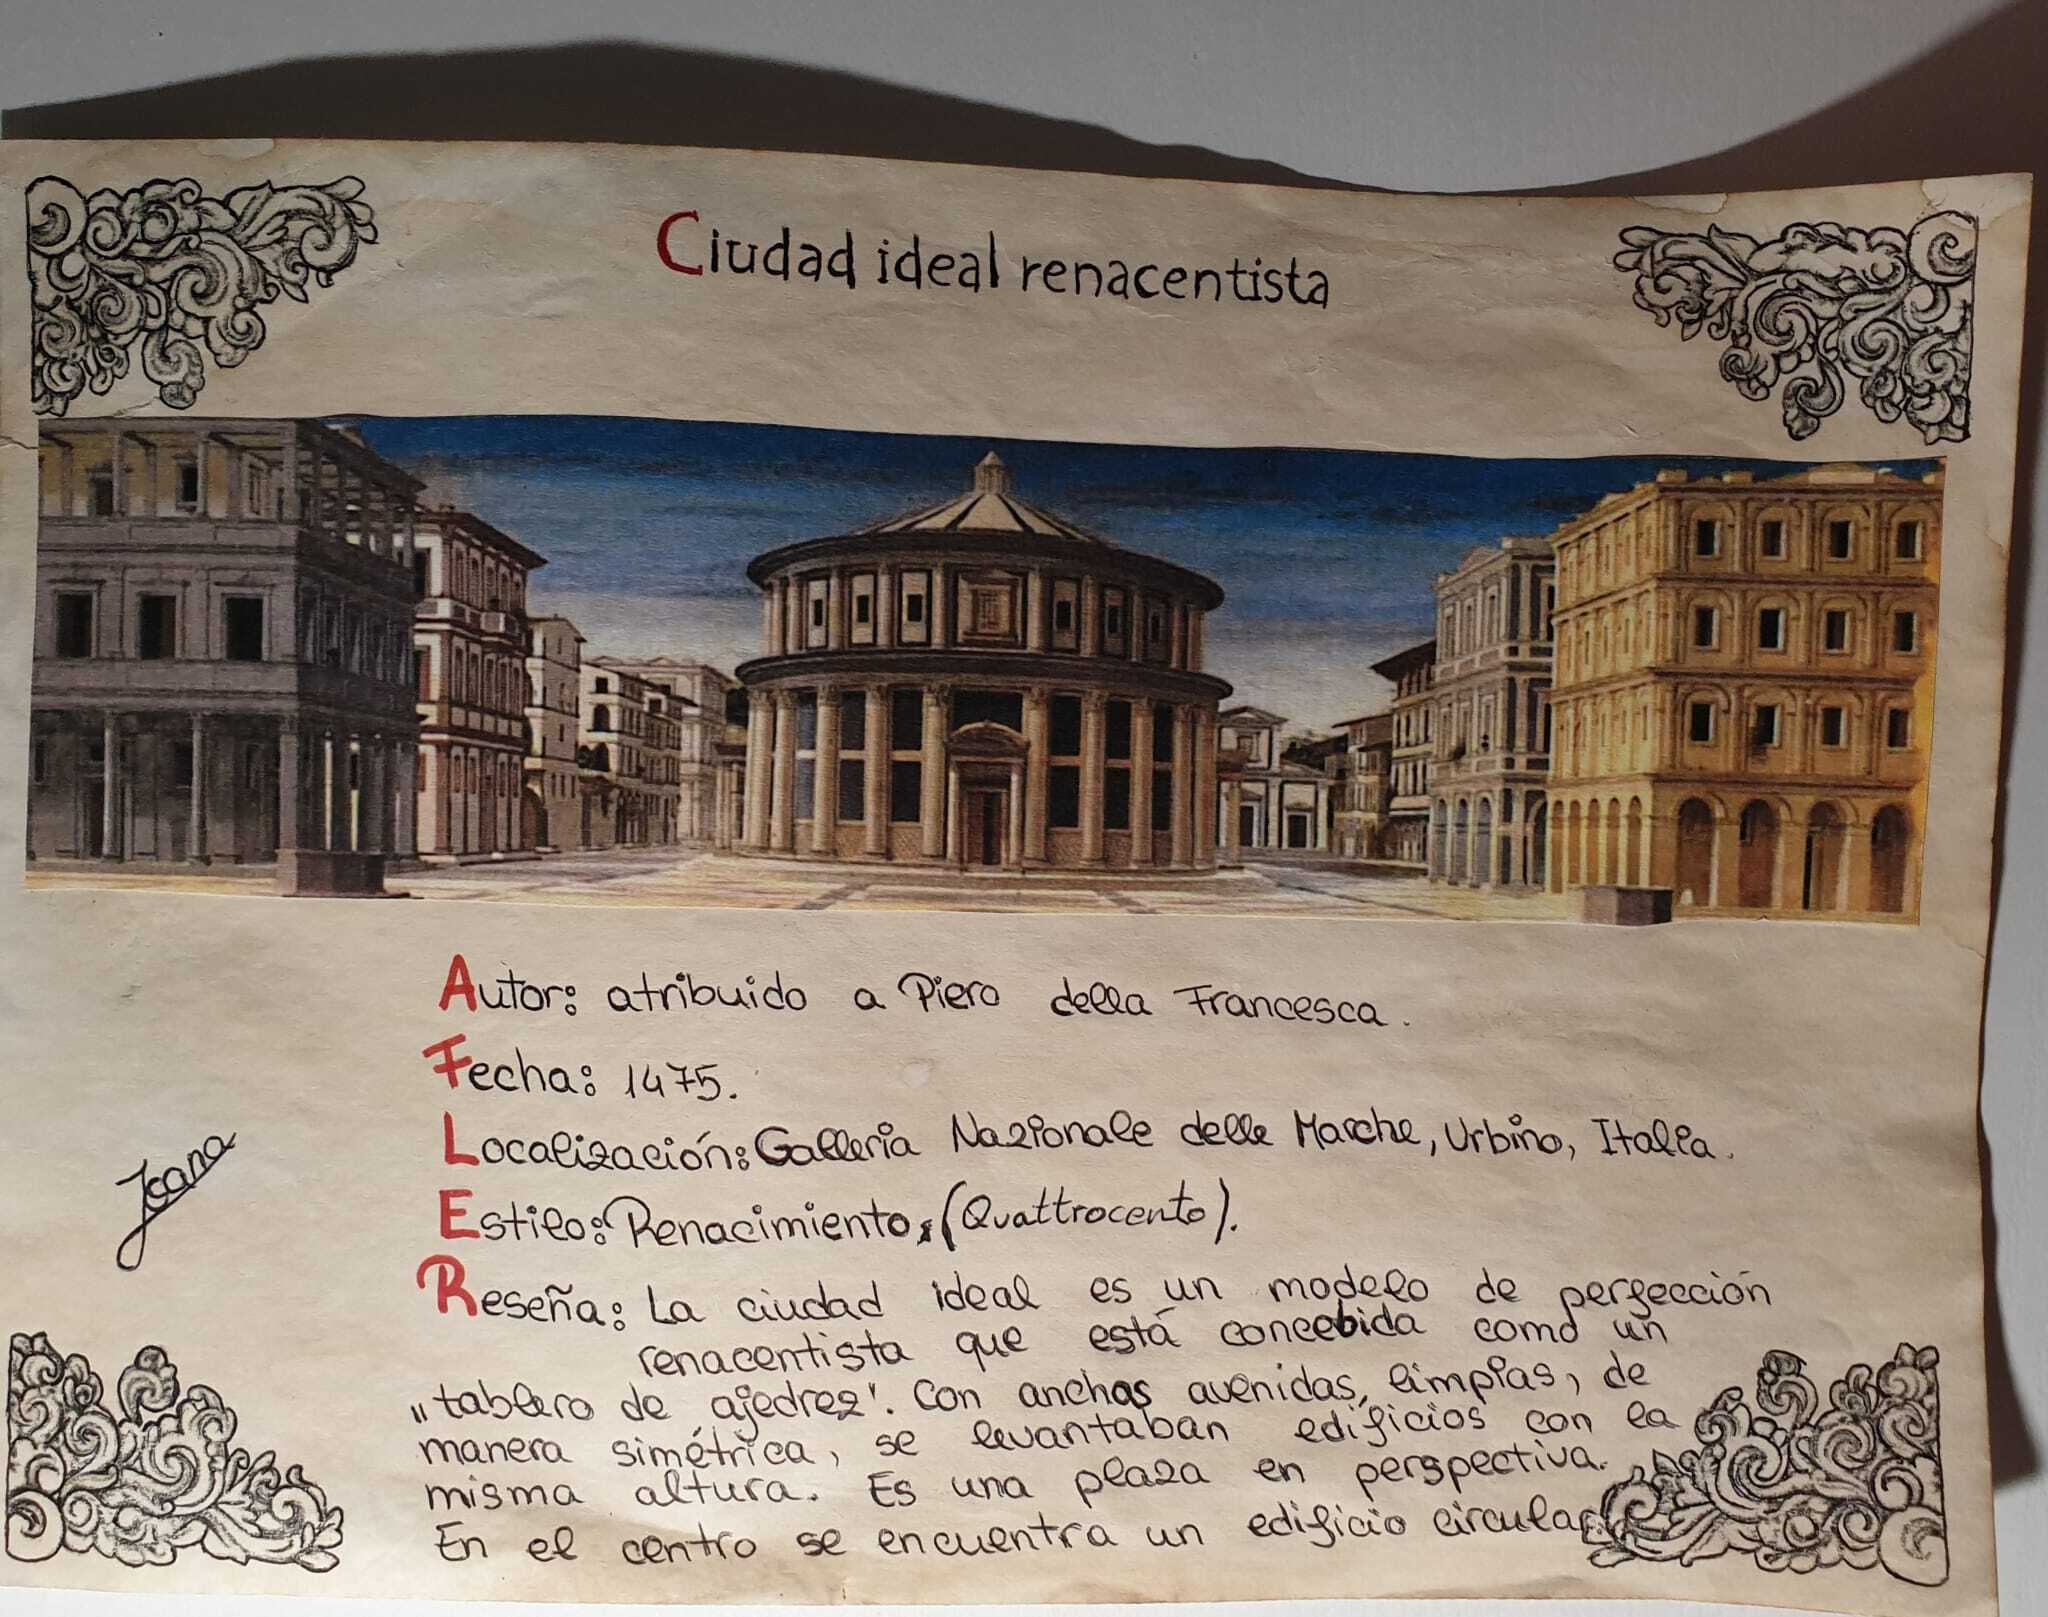 Ciudad ideal renacentista
Autor: atribuido a Piero della Francesca.
Fecha: 1475.
Localización: Galleria Nazionale delle Marche, Urbino, Italia.
Estilo: Renacimiento, (Quattrocento).
Reseña: La ciudad ideal es un modelo de perfección
renacentista que está concebida como un
"tablero de ajedrez". Con anchas avenidas, limpias, de
manera simétrica, se levantaban edificios con la
misma altura. Es una plaza en perspectiva.
En el centro se encuentra un edificio circular.
Joana